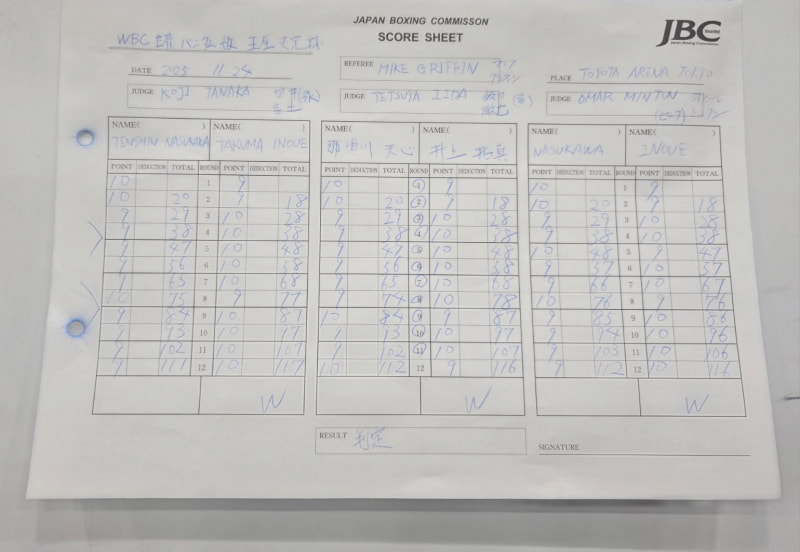 JAPAN BOXING COMMISSON
SCORE SHEET
JBC
Japan Boxing Commission
WBC 王座決定戦
DATE 2025. 11. 24
REFEREE MIKE GRIFFIN
PLACE TOYOTA ARENA TOKYO
JUDGE KOJI TANAKA
JUDGE TETSUYA IIDA
JUDGE OMAR MINTUN
NAME( ) NAME( ) NAME( ) NAME( ) NAME( ) NAME( )
TENSHIN NASUKAWA TAKUMA INOUE 那須川 天心 井上 拓真 NASUKAWA INOUE
POINT DEDUCTION TOTAL ROUND POINT DEDUCTION TOTAL POINT DEDUCTION TOTAL ROUND POINT DEDUCTION TOTAL POINT DEDUCTION TOTAL ROUND POINT DEDUCTION TOTAL
10 1 9 10 1 9 10 1 9
10 20 2 9 18 10 20 2 9 18 10 20 2 9 18
9 29 3 10 28 9 29 3 10 28 9 29 3 10 28
9 38 4 10 38 9 38 4 10 38 9 38 4 10 38
9 47 5 10 48 9 47 5 10 48 10 48 5 9 47
9 56 6 10 58 9 56 6 10 58 9 57 6 10 57
9 65 7 10 68 9 65 7 10 68 9 66 7 10 67
10 75 8 9 77 9 74 8 10 78 10 76 8 9 76
9 84 9 10 87 10 84 9 9 87 9 85 9 10 86
9 93 10 10 97 9 93 10 10 97 9 94 10 10 96
9 102 11 10 107 9 102 11 10 107 9 103 11 10 106
9 111 12 10 117 10 112 12 9 116 9 112 12 10 116
W W W
RESULT 判定
SIGNATURE